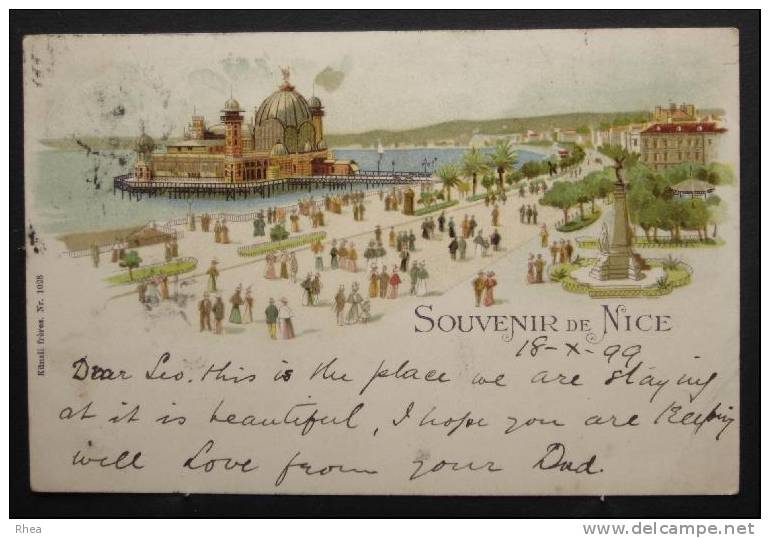 SOUVENIR DE NICE
18-X-99
Dear Leo. this is the place we are staying
at it is beautiful, I hope you are Keeping
well Love from your Dad.
Künzli frères. Nr. 1028
Rhea
delcampe.net